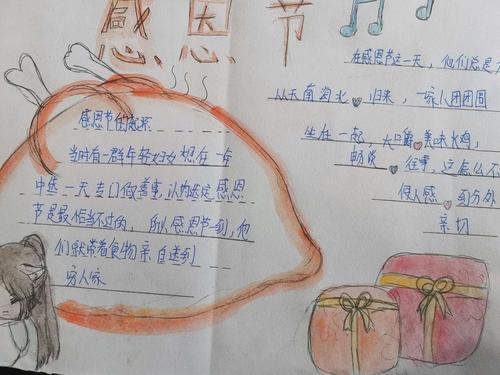 感恩节
感恩节的起源
当时有一群年轻妇女想在一年
中选一天去做善事,认为选定感恩
节是最恰当不过的,所以感恩节一到,他
们就带着食物亲自送到
穷人家
在感恩节这一天,他们总是
从天南海北归来,一家人团团圆
坐在一起,大嚼美味火鸡,
畅谈往事,这怎么不
使人感到分外
亲切